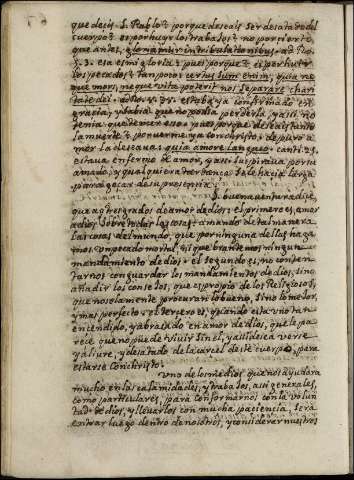 que decis. S. Pablo? porque deseais ser desatado del
cuerpo? es por huyr los trabajos? no por cierto,
que antes, gloriamur in tribulationibus. ad Ro.
5. 3. esa es mi gloria: pues porque? es por huyr
los pecados? tan poco: certus sum enim, quia ne
que mors, neque vita poterit nos separare chari
tate dei. estaba ya confirmado en
gracia, y sabia que no podia perderla, ya eso no
temia: que
la muerte, y ponerme ya con christo: de puro a
mor la deseaua: quia amore langueo. cant. 2. 5.
estaua enfermo de amor, y asi suspiraua por su
amado, y qual quiera tardança se le hacia larga
para goçar de su presencia.
S. buenauentura dice,
que ay tres grados de amor de dios: el primero es, amar
a dios sobre todas las cosas: amando de tal manera
las cosas del mundo, que por ninguna de ellas haga
mos un pecado mortal, ni que brantemos ningun
mandamiento de dios: el segundo es, no conten
tarnos con guardar los mandamientos de dios, sino
añadir los consejos, que es propio de los Religiosos,
que no solamente procuran lo bueno, sino lo mejor,
y mas perfecto: el tercero es, quando esta uno tan
encendido, y abrasado en amor de dios, que le pa
rece que no puede viuir sin el, y asi desea verse
ya libre, y desatado de la carcel de este cuerpo, para
estarse con christo.
Uno de los medios que nos ayudara
mucho en las calamidades, y trabajos, asi generales,
como particulares, para conformarnos con la volun
tad de dios, y lleuarlos con mucha paciencia, sera
entrar luego dentro de nosotros, y considerar nuestros